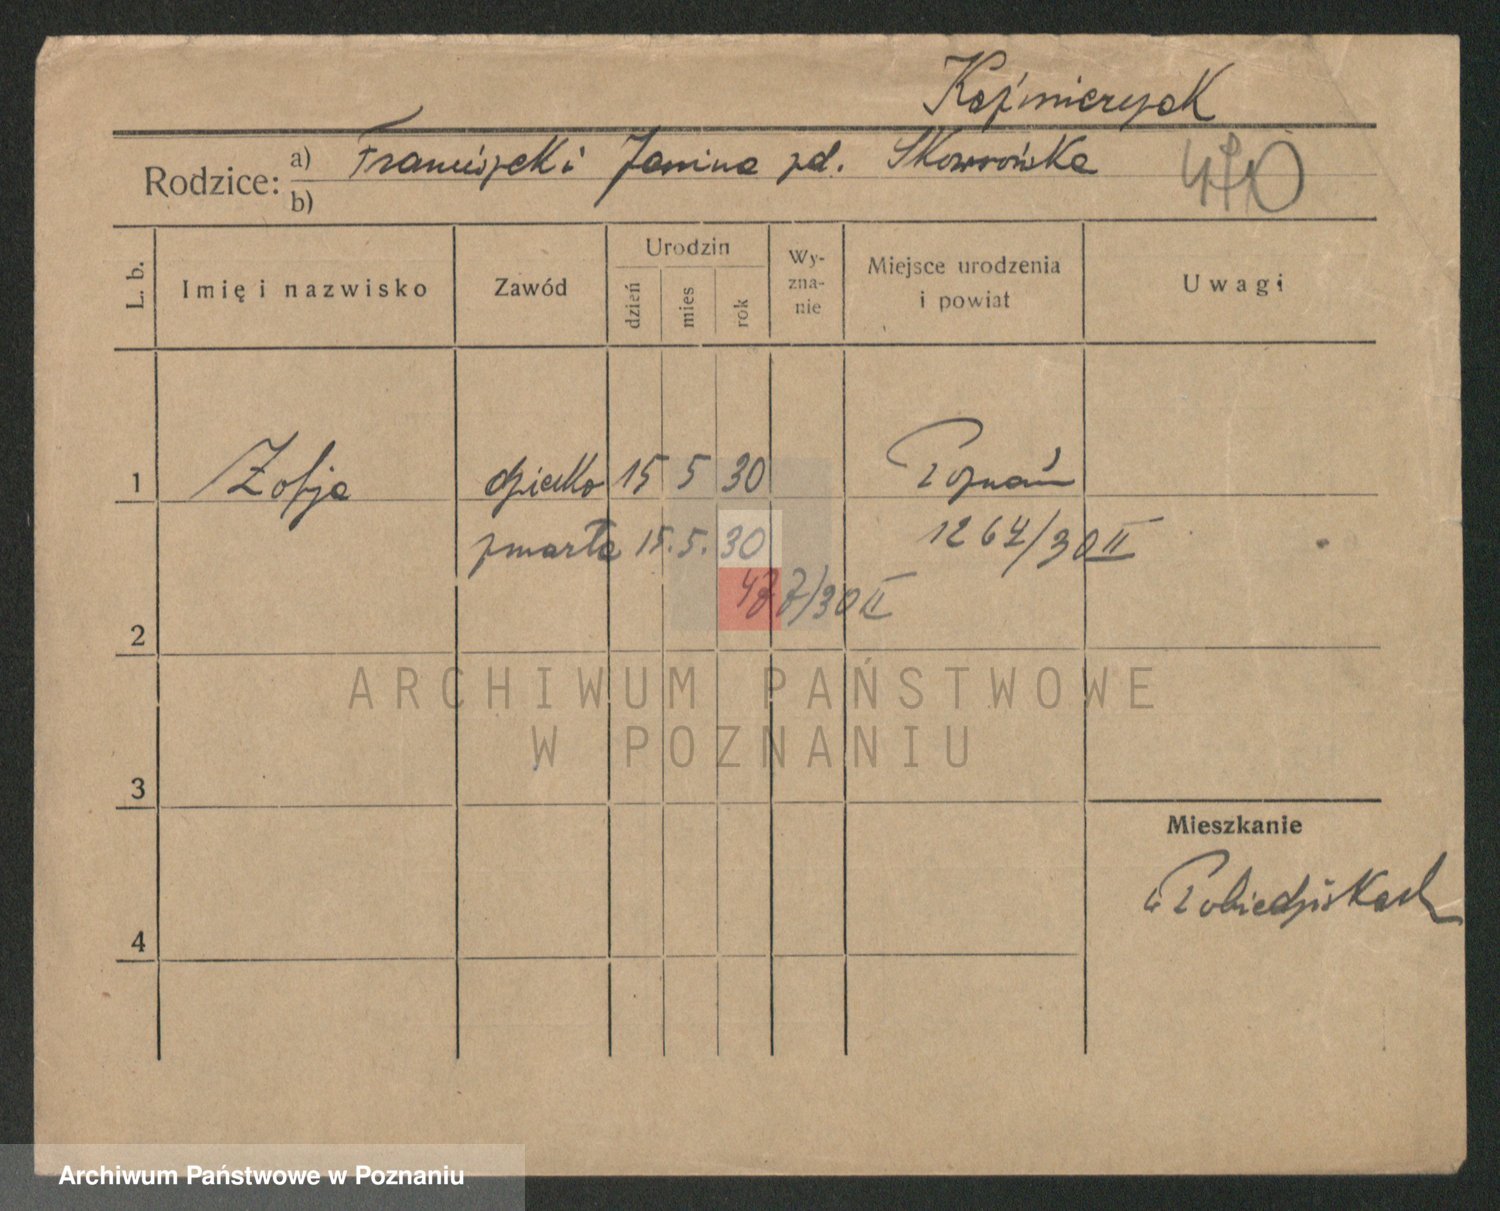 Kaźmierczak
Rodzice: a) Franciszek i Janina zd. Skowrońska
b)
L. b. Imię i nazwisko Zawód Urodzin dzień mies rok Wy-zna-nie Miejsce urodzenia i powiat Uwagi
1 Zofja dziecko 15 5 30 Poznań
zmarła 15. 5. 30 1264/30 II
477/30 II
2
ARCHIWUM PAŃSTWOWE
W POZNANIU
3
Mieszkanie
w Pobiedziskach
4
Archiwum Państwowe w Poznaniu